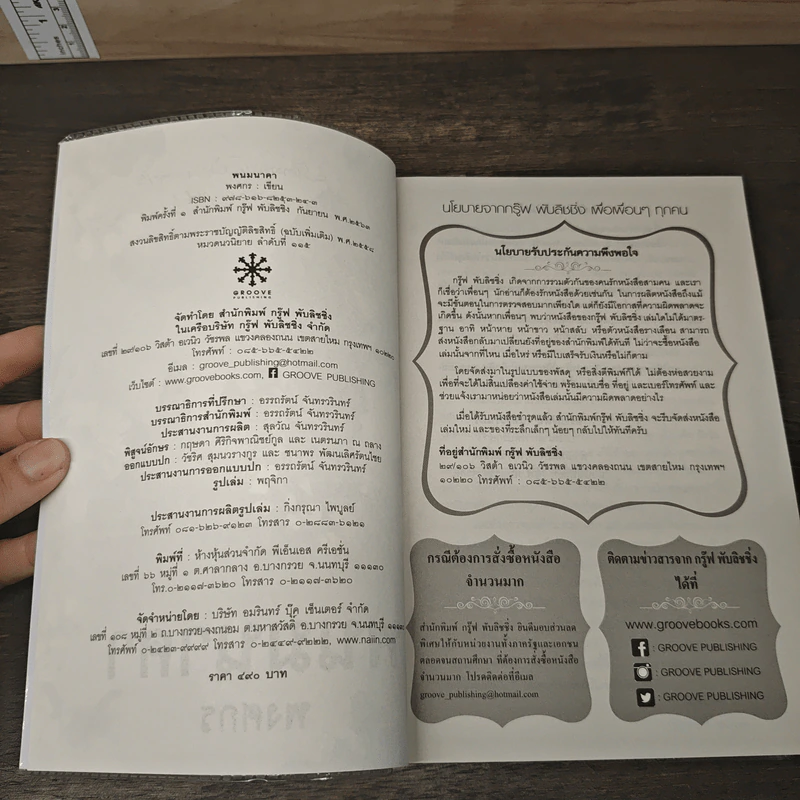 พนมนาคา
พงศกร : เขียน
ISBN : ๙๗๘-๖๑๖-๘๒๕๓-๒๔-๓
พิมพ์ครั้งที่ ๑ สำนักพิมพ์ กรู๊ฟ พับลิชชิ่ง กันยายน พ.ศ.๒๕๖๓
สงวนลิขสิทธิ์ตามพระราชบัญญัติลิขสิทธิ์ (ฉบับเพิ่มเติม) พ.ศ.๒๕๕๘
หมวดนวนิยาย ลำดับที่ ๑๑๕
GROOVE
PUBLISHING
จัดทำโดย สำนักพิมพ์ กรู๊ฟ พับลิชชิ่ง
ในเครือบริษัท กรู๊ฟ พับลิชชิ่ง จำกัด
เลขที่ ๒๙/๑๐๖ วิสต้า อเวนิว วัชรพล แขวงคลองถนน เขตสายไหม กรุงเทพฯ ๑๐๒๒๐
โทรศัพท์ : ๐๘๕-๖๖๕-๕๔๒๒
อีเมล : groove_publishing@hotmail.com
เว็บไซต์ : www.groovebooks.com, GROOVE PUBLISHING
บรรณาธิการที่ปรึกษา : อรรถรัตน์ จันทรวรินทร์
บรรณาธิการสำนักพิมพ์ : อรรถรัตน์ จันทรวรินทร์
ประสานงานการผลิต : สุลวัณ จันทรวรินทร์
พิสูจน์อักษร : กฤษดา ศิริกิจพาณิชย์กูล และ เนตรนภา ณ ถลาง
ออกแบบปก : วัชริศ สุมนวรางกูร และ ชนาพร พัฒนเลิศรัตนไชย
ประสานงานการออกแบบปก : อรรถรัตน์ จันทรวรินทร์
รูปเล่ม : พฤจิกา
ประสานงานการผลิตรูปเล่ม : กิ่งกรุณา ไพบูลย์
โทรศัพท์ ๐๘๑-๖๒๖-๙๑๒๓ โทรสาร ๐-๒๘๘๓-๖๑๒๑
พิมพ์ที่ : ห้างหุ้นส่วนจำกัด พีเอ็นเอส ครีเอชั่น
เลขที่ ๖๖ หมู่ที่ ๑ ต.ศาลากลาง อ.บางกรวย จ.นนทบุรี ๑๑๑๓๐
โทร.๐-๒๑๑๗-๓๖๒๐ โทรสาร ๐-๒๑๑๗-๓๖๒๐
จัดจำหน่ายโดย : บริษัท อมรินทร์ บุ๊ค เซ็นเตอร์ จำกัด
เลขที่ ๑๐๘ หมู่ที่ ๒ ถ.บางกรวย-จงถนอม ต.มหาสวัสดิ์ อ.บางกรวย จ.นนทบุรี
โทรศัพท์ ๐-๒๔๒๓-๙๙๙๙ โทรสาร ๐-๒๔๔๙-๙๒๒๒, www.naiin.com
ราคา ๔๙๐ บาท
นโยบายจากกรู๊ฟ พับลิชชิ่ง เพื่อเพื่อนๆ ทุกคน
นโยบายรับประกันความพึงพอใจ
กรู๊ฟ พับลิชชิ่ง เกิดจากการรวมตัวกันของคนรักหนังสือสามคน และเรา
ก็เชื่อว่าเพื่อนๆ นักอ่านก็ต้องรักหนังสือด้วยเช่นกัน ในการผลิตหนังสือถึงแม้
จะมีขั้นตอนในการตรวจสอบมากเพียงใด แต่ก็ยังมีโอกาสที่ความผิดพลาดจะ
เกิดขึ้น ดังนั้นหากเพื่อนๆ พบว่าหนังสือของกรู๊ฟ พับลิชชิ่ง เล่มใดไม่ได้มาตร-
ฐาน อาทิ หน้าหาย หน้าขาว หน้าสลับ หรือตัวหนังสือรางเลือน สามารถ
ส่งหนังสือกลับมาเปลี่ยนยังที่อยู่ของสำนักพิมพ์ได้ทันที ไม่ว่าจะซื้อหนังสือ
เล่มนั้นจากที่ไหน เมื่อไหร่ หรือมีใบเสร็จรับเงินหรือไม่ก็ตาม
โดยจัดส่งมาในรูปแบบของพัสดุ หรือสิ่งตีพิมพ์ก็ได้ ไม่ต้องห่อสวยงาม
เพื่อที่จะได้ไม่สิ้นเปลืองค่าใช้จ่าย พร้อมแนบชื่อ ที่อยู่ และเบอร์โทรศัพท์ และ
ช่วยแจ้งเรามาหน่อยว่าหนังสือเล่มนั้นมีความผิดพลาดอย่างไร
เมื่อได้รับหนังสือชำรุดแล้ว สำนักพิมพ์กรู๊ฟ พับลิชชิ่ง จะรีบจัดส่งหนังสือ
เล่มใหม่ และของที่ระลึกเล็กๆ น้อยๆ กลับไปให้ทันทีครับ
ที่อยู่สำนักพิมพ์ กรู๊ฟ พับลิชชิ่ง
๒๙/๑๐๖ วิสต้า อเวนิว วัชรพล แขวงคลองถนน เขตสายไหม กรุงเทพฯ
๑๐๒๒๐ โทรศัพท์ : ๐๘๕-๖๖๕-๕๔๒๒
กรณีต้องการสั่งซื้อหนังสือ
จำนวนมาก
สำนักพิมพ์ กรู๊ฟ พับลิชชิ่ง ยินดีมอบส่วนลด
พิเศษให้กับหน่วยงานทั้งภาครัฐและเอกชน
ตลอดจนสถานศึกษา ที่ต้องการสั่งซื้อหนังสือ
จำนวนมาก โปรดติดต่อที่อีเมล
groove_publishing@hotmail.com
ติดตามข่าวสารจาก กรู๊ฟ พับลิชชิ่ง
ได้ที่
www.groovebooks.com
: GROOVE PUBLISHING
: GROOVE PUBLISHING
: GROOVE PUBLISHING